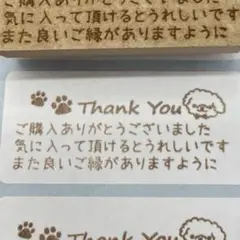 気に入って頂けるとうれしいです
また良いご縁がありますように
Thank You
ご購入ありがとうございました
気に入って頂けるとうれしいです
また良いご縁がありますように
Thank You